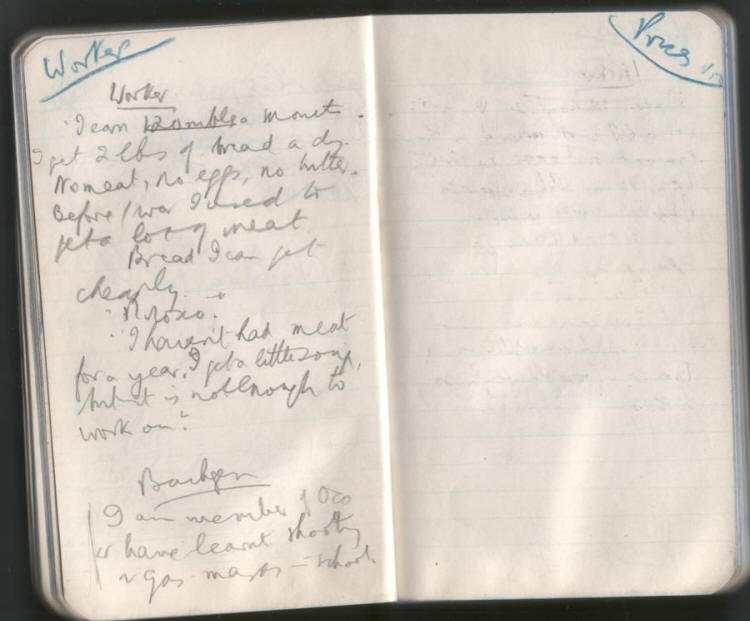 Worker
Worker
"I earn 120 rubles a month.
I get 2 lbs of bread a dy.
No meat, no eggs, no butter.
Before / war I used to
get a lot of meat
Bread I can get
cheaply.
"Ploxo."
"I haven't had meat
for a year. I get a little soup,
but it is not enough to
work on."
I am member of Oso
& have learnt shooting
& gas-masks - school.
Prices